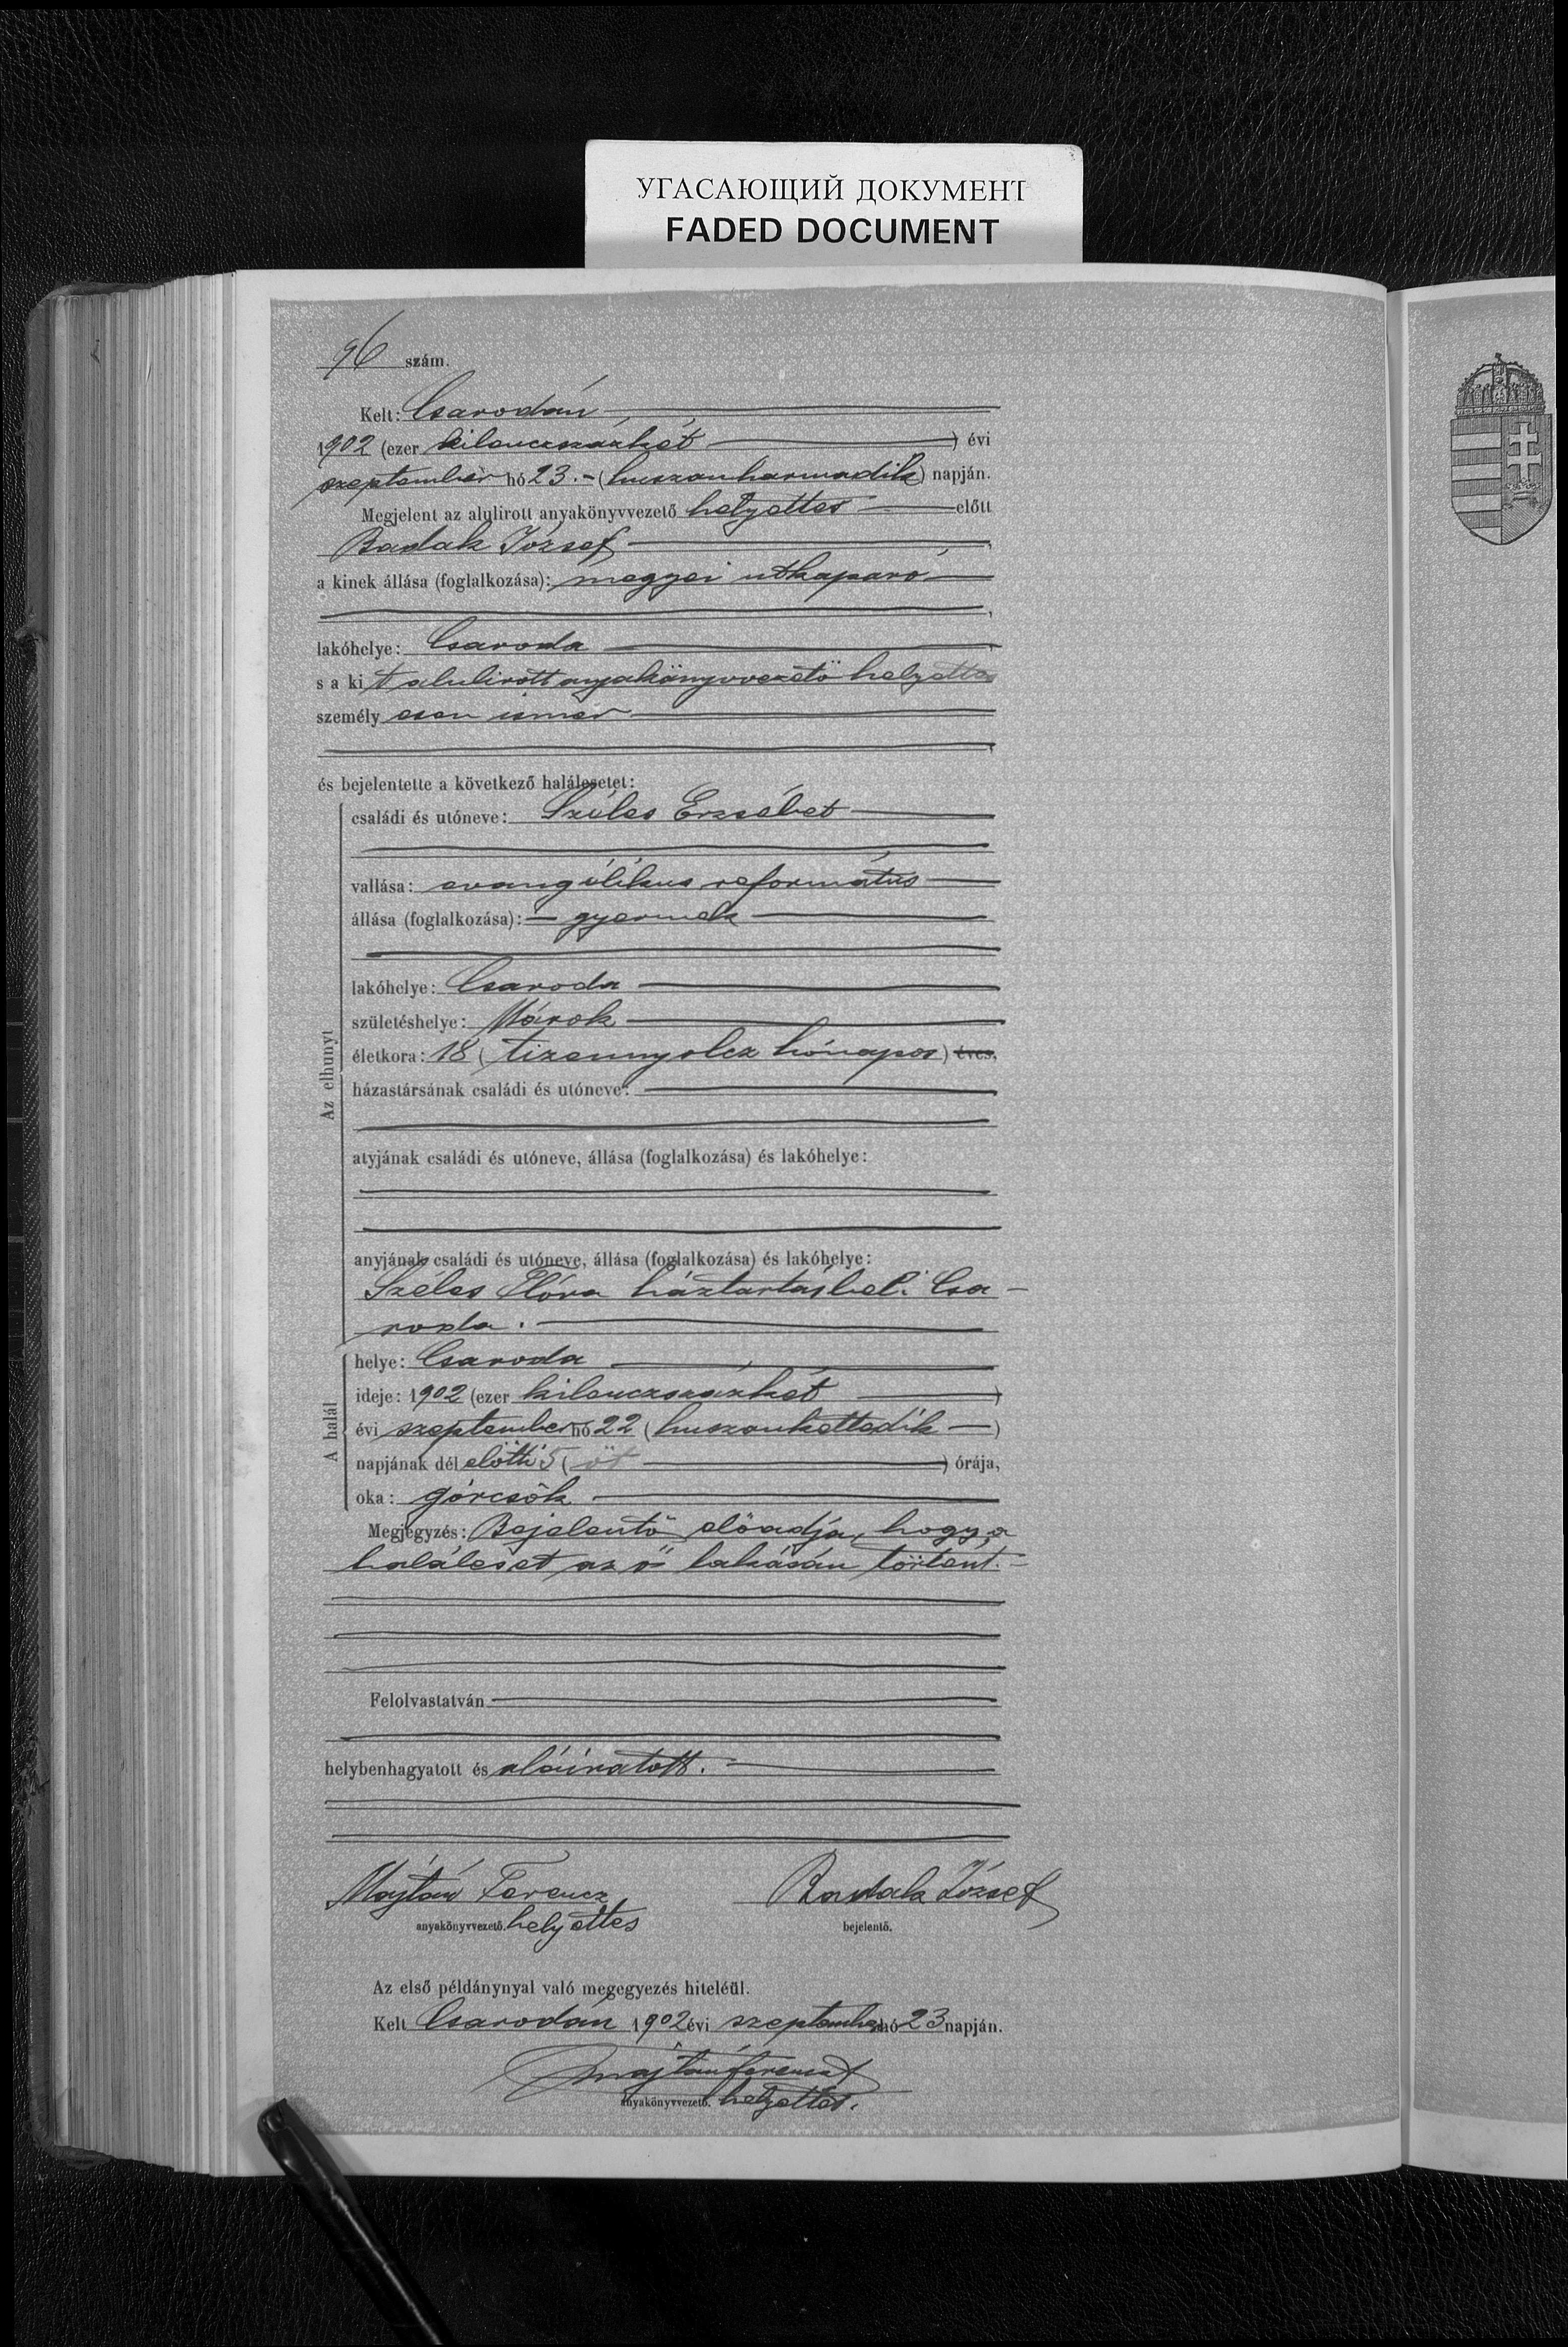 УГАСАЮЩИЙ ДОКУМЕНТ
FADED DOCUMENT
96 szám.
Kelt: Csarodán
1902 (ezer kilenczszázkét) évi
szeptember hó 23. - (huszonharmadik) napján.
Megjelent az alulirott anyakönyvvezető helyettes előtt
Badak József,
a kinek állása (foglalkozása): megyei utkaparó
lakóhelye: Csaroda
s a ki t alulirott anyakönyvvezető helyettes
személy esen ismer
és bejelentette a következő halálesetet:
Az elhunyt
családi és utóneve: Széles Erzsébet
vallása: evangélikus református
állása (foglalkozása): - gyermek
lakóhelye: Csaroda
születéshelye: Márok
életkora: 18 (tizennyolcz hónapos) éves,
házastársának családi és utóneve:
atyjának családi és utóneve, állása (foglalkozása) és lakóhelye:
anyjának családi és utóneve, állása (foglalkozása) és lakóhelye:
Széles Flóra háztartásbeli Csa-
roda.
A halál
helye: Csaroda
ideje: 1902 (ezer kilenczszázkét)
évi szeptember hó 22 (huszonkettedik)
napjának dél előtti 5 (öt) órája,
oka: görcsök
Megjegyzés: Bejelentő előadja, hogy a
haláleset az ő lakásán történt. -
Felolvastatván
helybenhagyatott és aláiratott.
Majtán Ferencz Badak József
anyakönyvvezető. helyettes bejelentő.
Az első példánynyal való megegyezés hiteléül.
Kelt Csarodán 1902 évi szeptember hó 23 napján.
Majtán Ferencz
anyakönyvvezető. helyettes.